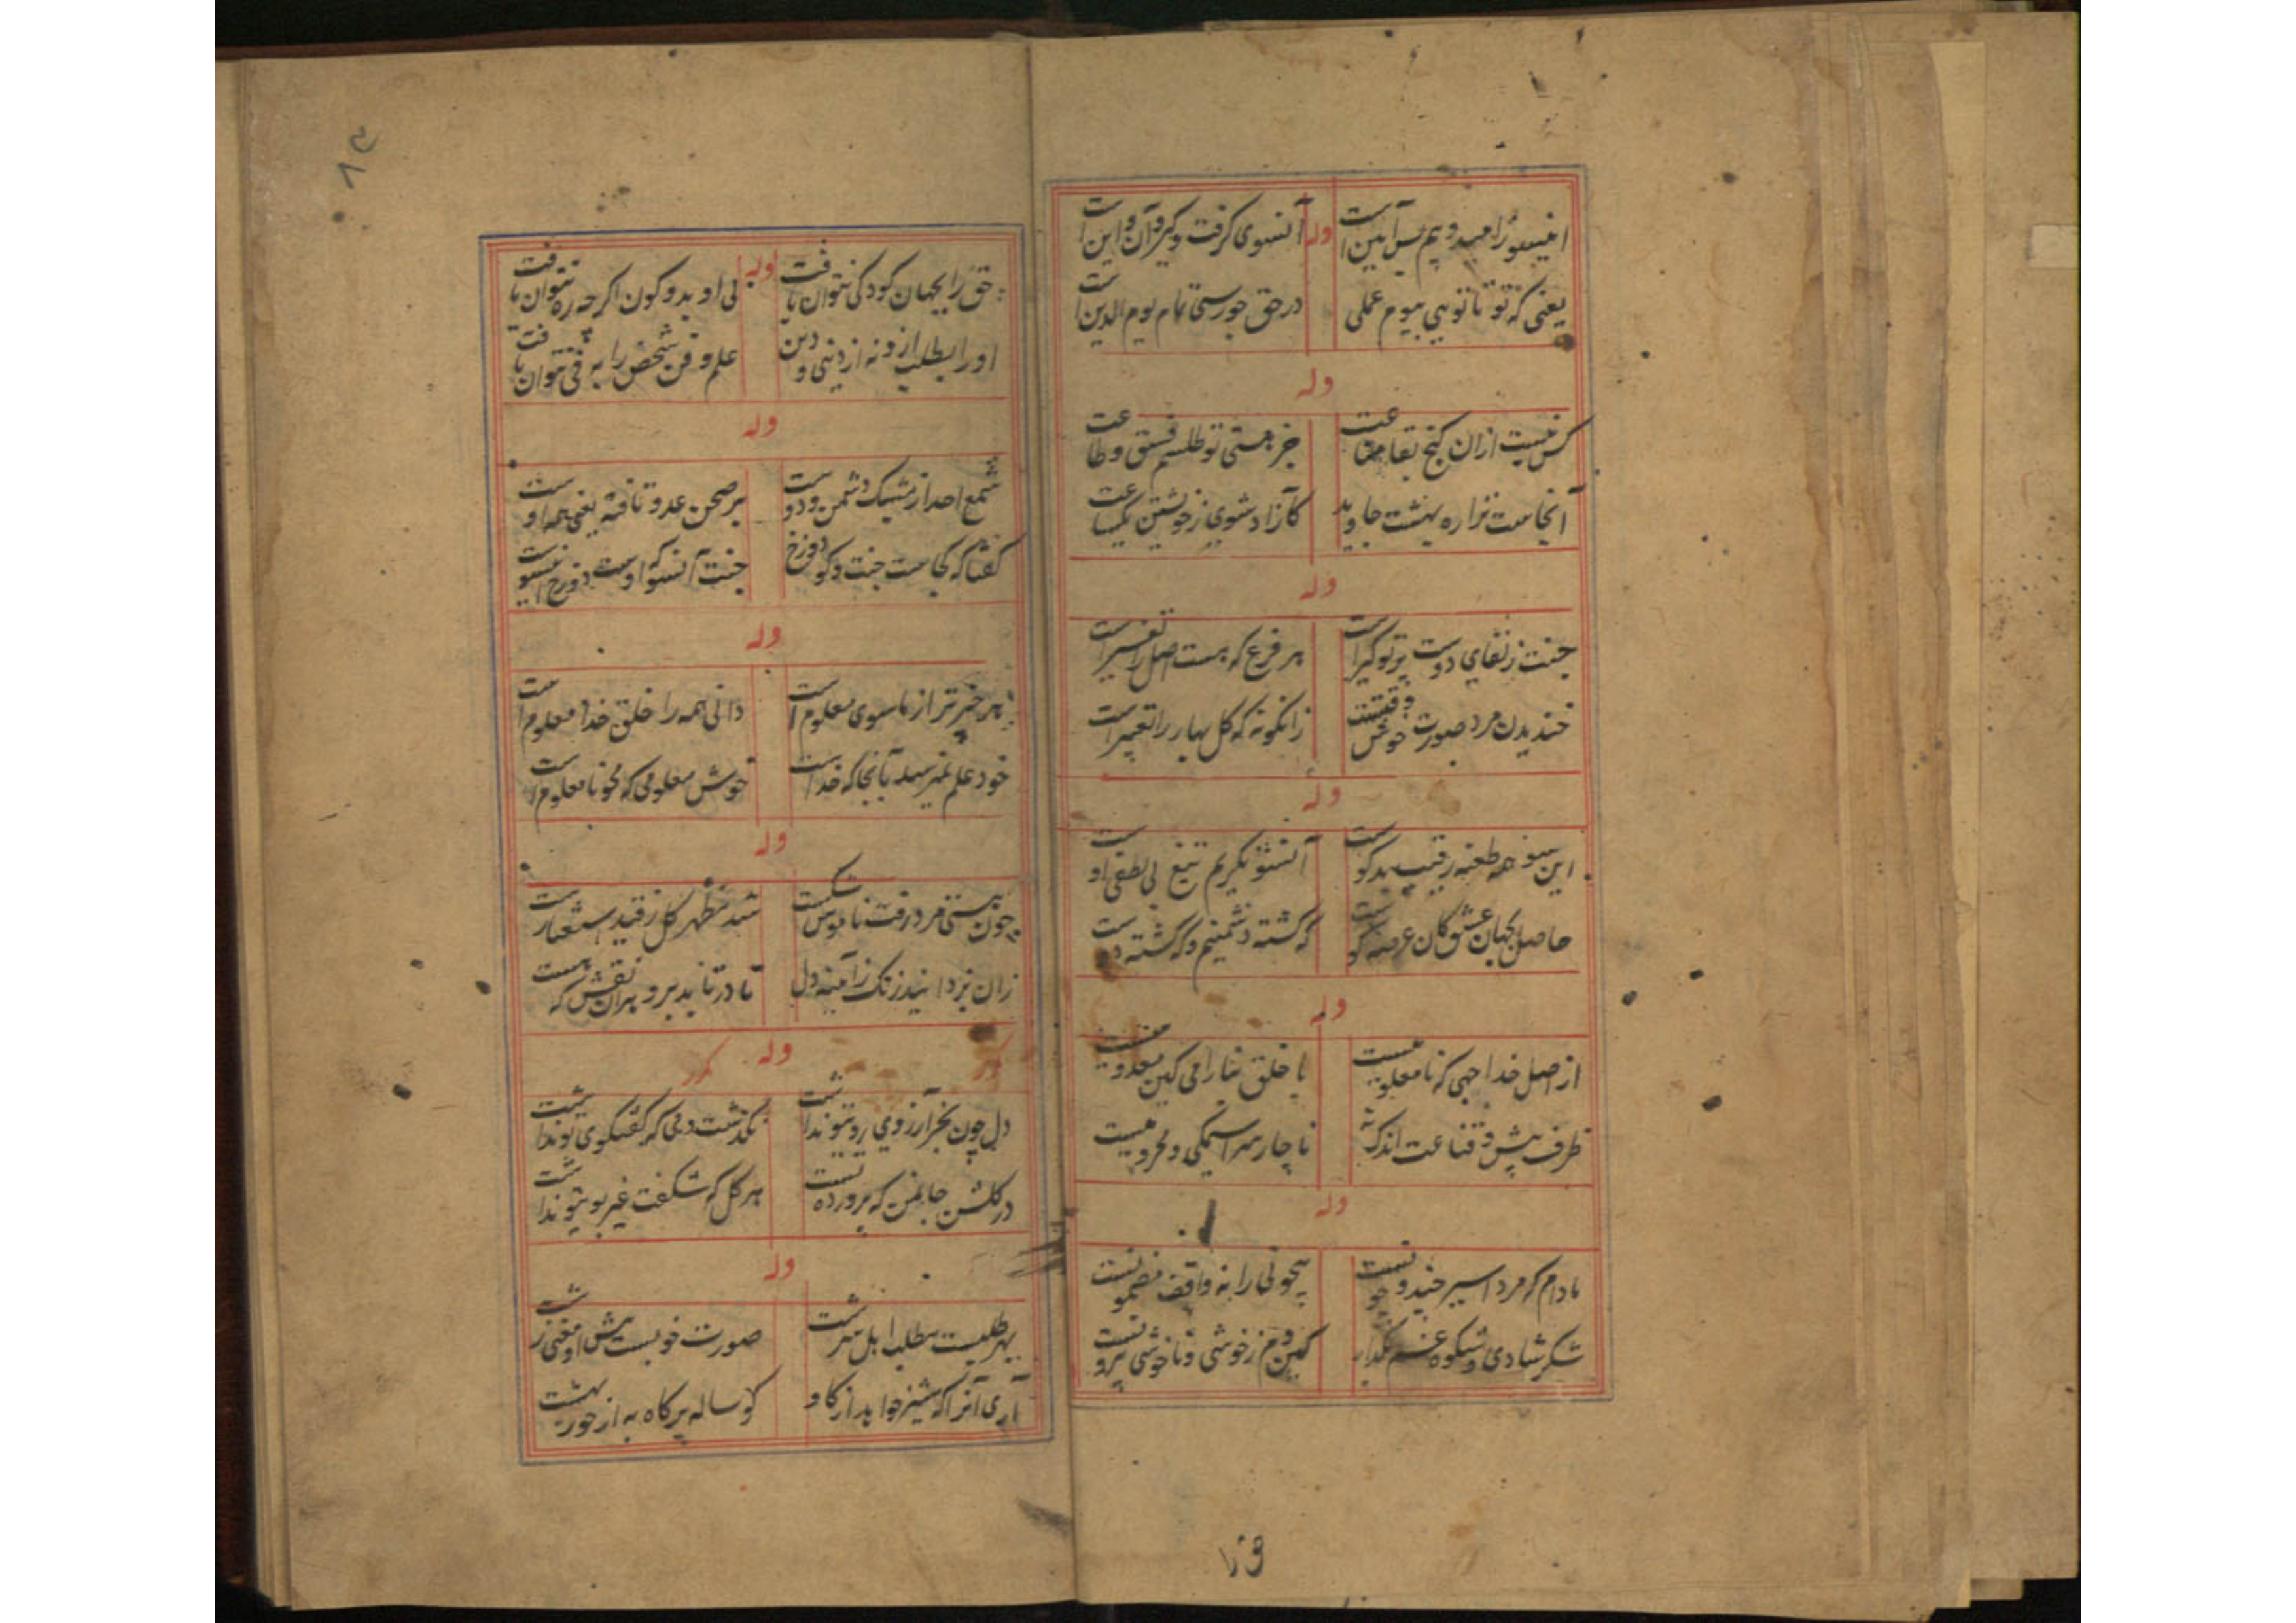 اینسو را امید و بیم پس آیین است
وله
آنسوی گرفت و گیر و آن و این است
یعنی که تو تا تویی بیوم عملی
در حق چو رسی تمام یوم الدین است
وله
کس نیست ازان گنج بقا
جز هستی تو طلسم فسق و طاعت
آنجاست ترا ره بهشت جاوید
کازاد شوی ز خویشتن یکساعت
وله
جنت ز لقای دوست پرتو گیر است
هر فرع که هست اصل را تعبیر است
خندیدن مرد صورت خوش وقتیست
زانگونه که گل بهار را تعبیر است
وله
این سو همه طعنه رقیب بدگوست
آنسو نگریم تیغ بی لطفی اوست
حاصل بجهان عشق کان عرصه گوست
که کشته دشمنیم و که کشته دوست
وله
از اصل خدا جهی که نامعلومیست
با خلق بنا کین معدومیست
ظرف بیش و قناعت اندک
ناچار سراسیمگی و محرومیست
وله
مادام که مرد اسیر چند و چونست
بیچونی را نه واقف مضمونست
شکر شادی و شکوه غم بگذار
کین دم ز خوشی و ناخوشی بیرونست
۱۲۹
۸۳
حق را بجهان کودکی نتوان یافت
وله
بی او بدو کون اگرچه ره نتوان یافت
او را بطلب ازو نه از دنیی و دین
علم و فن شخص را به فی نتوان یافت
وله
شمع احد از مشبک دشمن و دوست
بر صحن عدو تافته یعنی همه اوست
گفتا که کجاست جنت و کو دوزخ
جنت آنسو که اوست دوزخ اینسوست
وله
هر چیز تر از ماسوی معلوم است
دانی همه را خلق خدا معلوم است
خود علم نمیرسد بآنجا که خداست
خوش معلومی که محو نامعلوم است
وله
چون هستی مرد رفت ناموس شکست
شد مظهر کل ز قید
زان بزدایند زنک ز آینه دل
تا در تابد برو هر آن نقش که هست
وله
دل چون بجز آرزوی رو تو نداشت
نگذشت دمی که گفتگوی تو نداشت
در گلشن جانمن که پرورده تست
هر گل که شکفت غیر بو تو نداشت
وله
صورت خوبست پیش او معنی زشت
آری آنرا که شیر خواهد از گاو
گوساله پر کاه به از حور بهشت